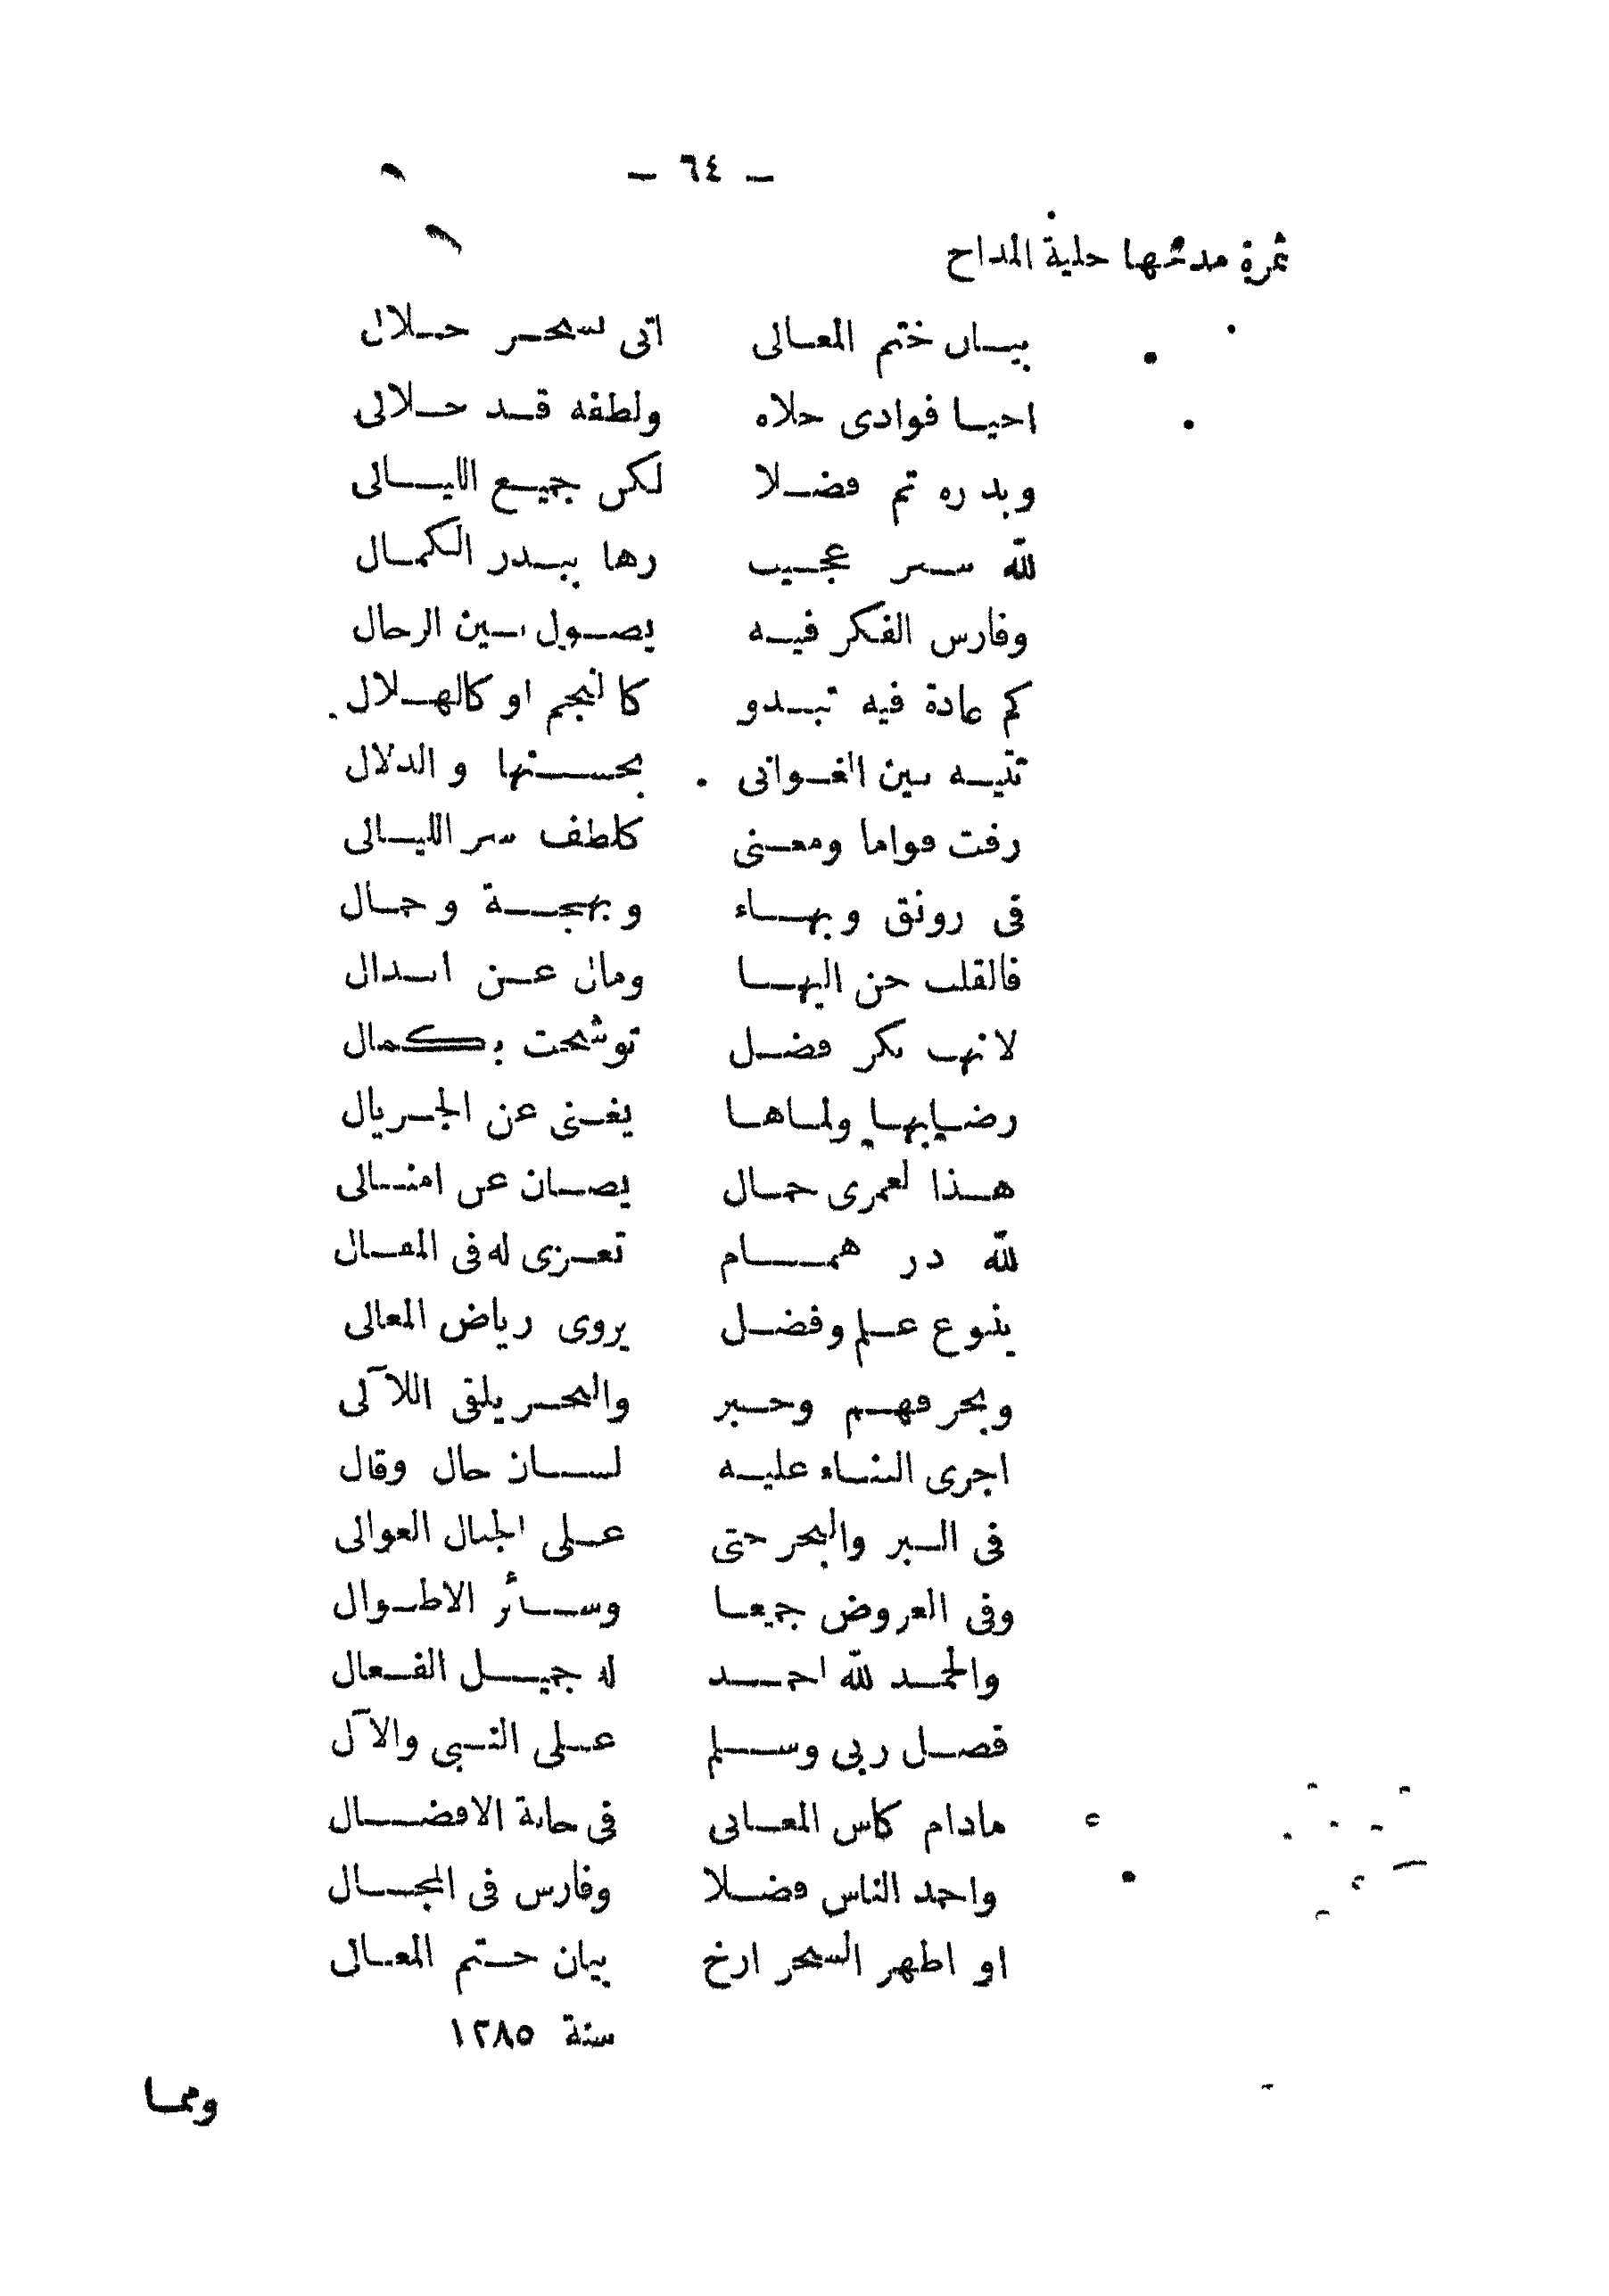 ـ ٦٤ ـ
ثمرة مدحها حلية المداح
بيـان ختم المعـالى اتى بسحـر حـلال
احيـا فوادى حلاه ولطفه قـد حـلالى
وبدره تم فضـلا لكن جميـع الليـالى
لله سـر عجـيب زها ببـدر الكمـال
وفارس الفكر فيـه يصـول بـين الرجال
كم غادة فيه تبـدو كالنجم او كالهـلال
تتيـه بين الغـوانى بحسـنها والدلال
رقت قواما ومعـنى كلطف سر الليـالى
فى رونق وبهـاء وبهجـة وجمـال
فالقلب حن اليهـا ومال عـن ابـدال
لانهـا بكر فضـل توشحت بكمال
رضـابهـا ولمـاهـا يغـنى عن الجـريال
هـذا لعمرى جمـال يصـان عن امثـالى
لله در همـام تعـزى له فى المقـال
ينبوع عـلم وفضـل يروى رياض المعالى
وبحر فهـم وحـبر والبحـر يلقى اللآلى
اجرى الثنـاء عليـه لسـان حال وقال
فى الـبر والبحر حتى عـلى الجبال العوالى
وفى العروض جميعـا وسـائر الاطـوال
والحمـد لله احمـد له جميـل الفـعال
فصـل ربى وسـلم عـلى النـبى والآل
مادام كاس المعـانى فى حانة الافضـال
واحمد الناس فضـلا وفارس فى المجـال
او اظهر السحر ارخ بيان خـتم المعـالى
سنة ١٢٨٥
وممـا